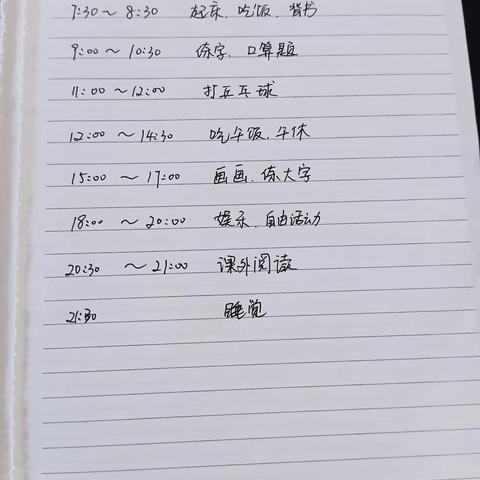 7:30～8:30 起床、吃饭、背书
9:00～10:30 练字、口算题
11:00～12:00 打乒乓球
12:00～14:30 吃午饭、午休
15:00～17:00 画画、练大字
18:00～20:00 娱乐、自由活动
20:30～21:00 课外阅读
21:30 睡觉